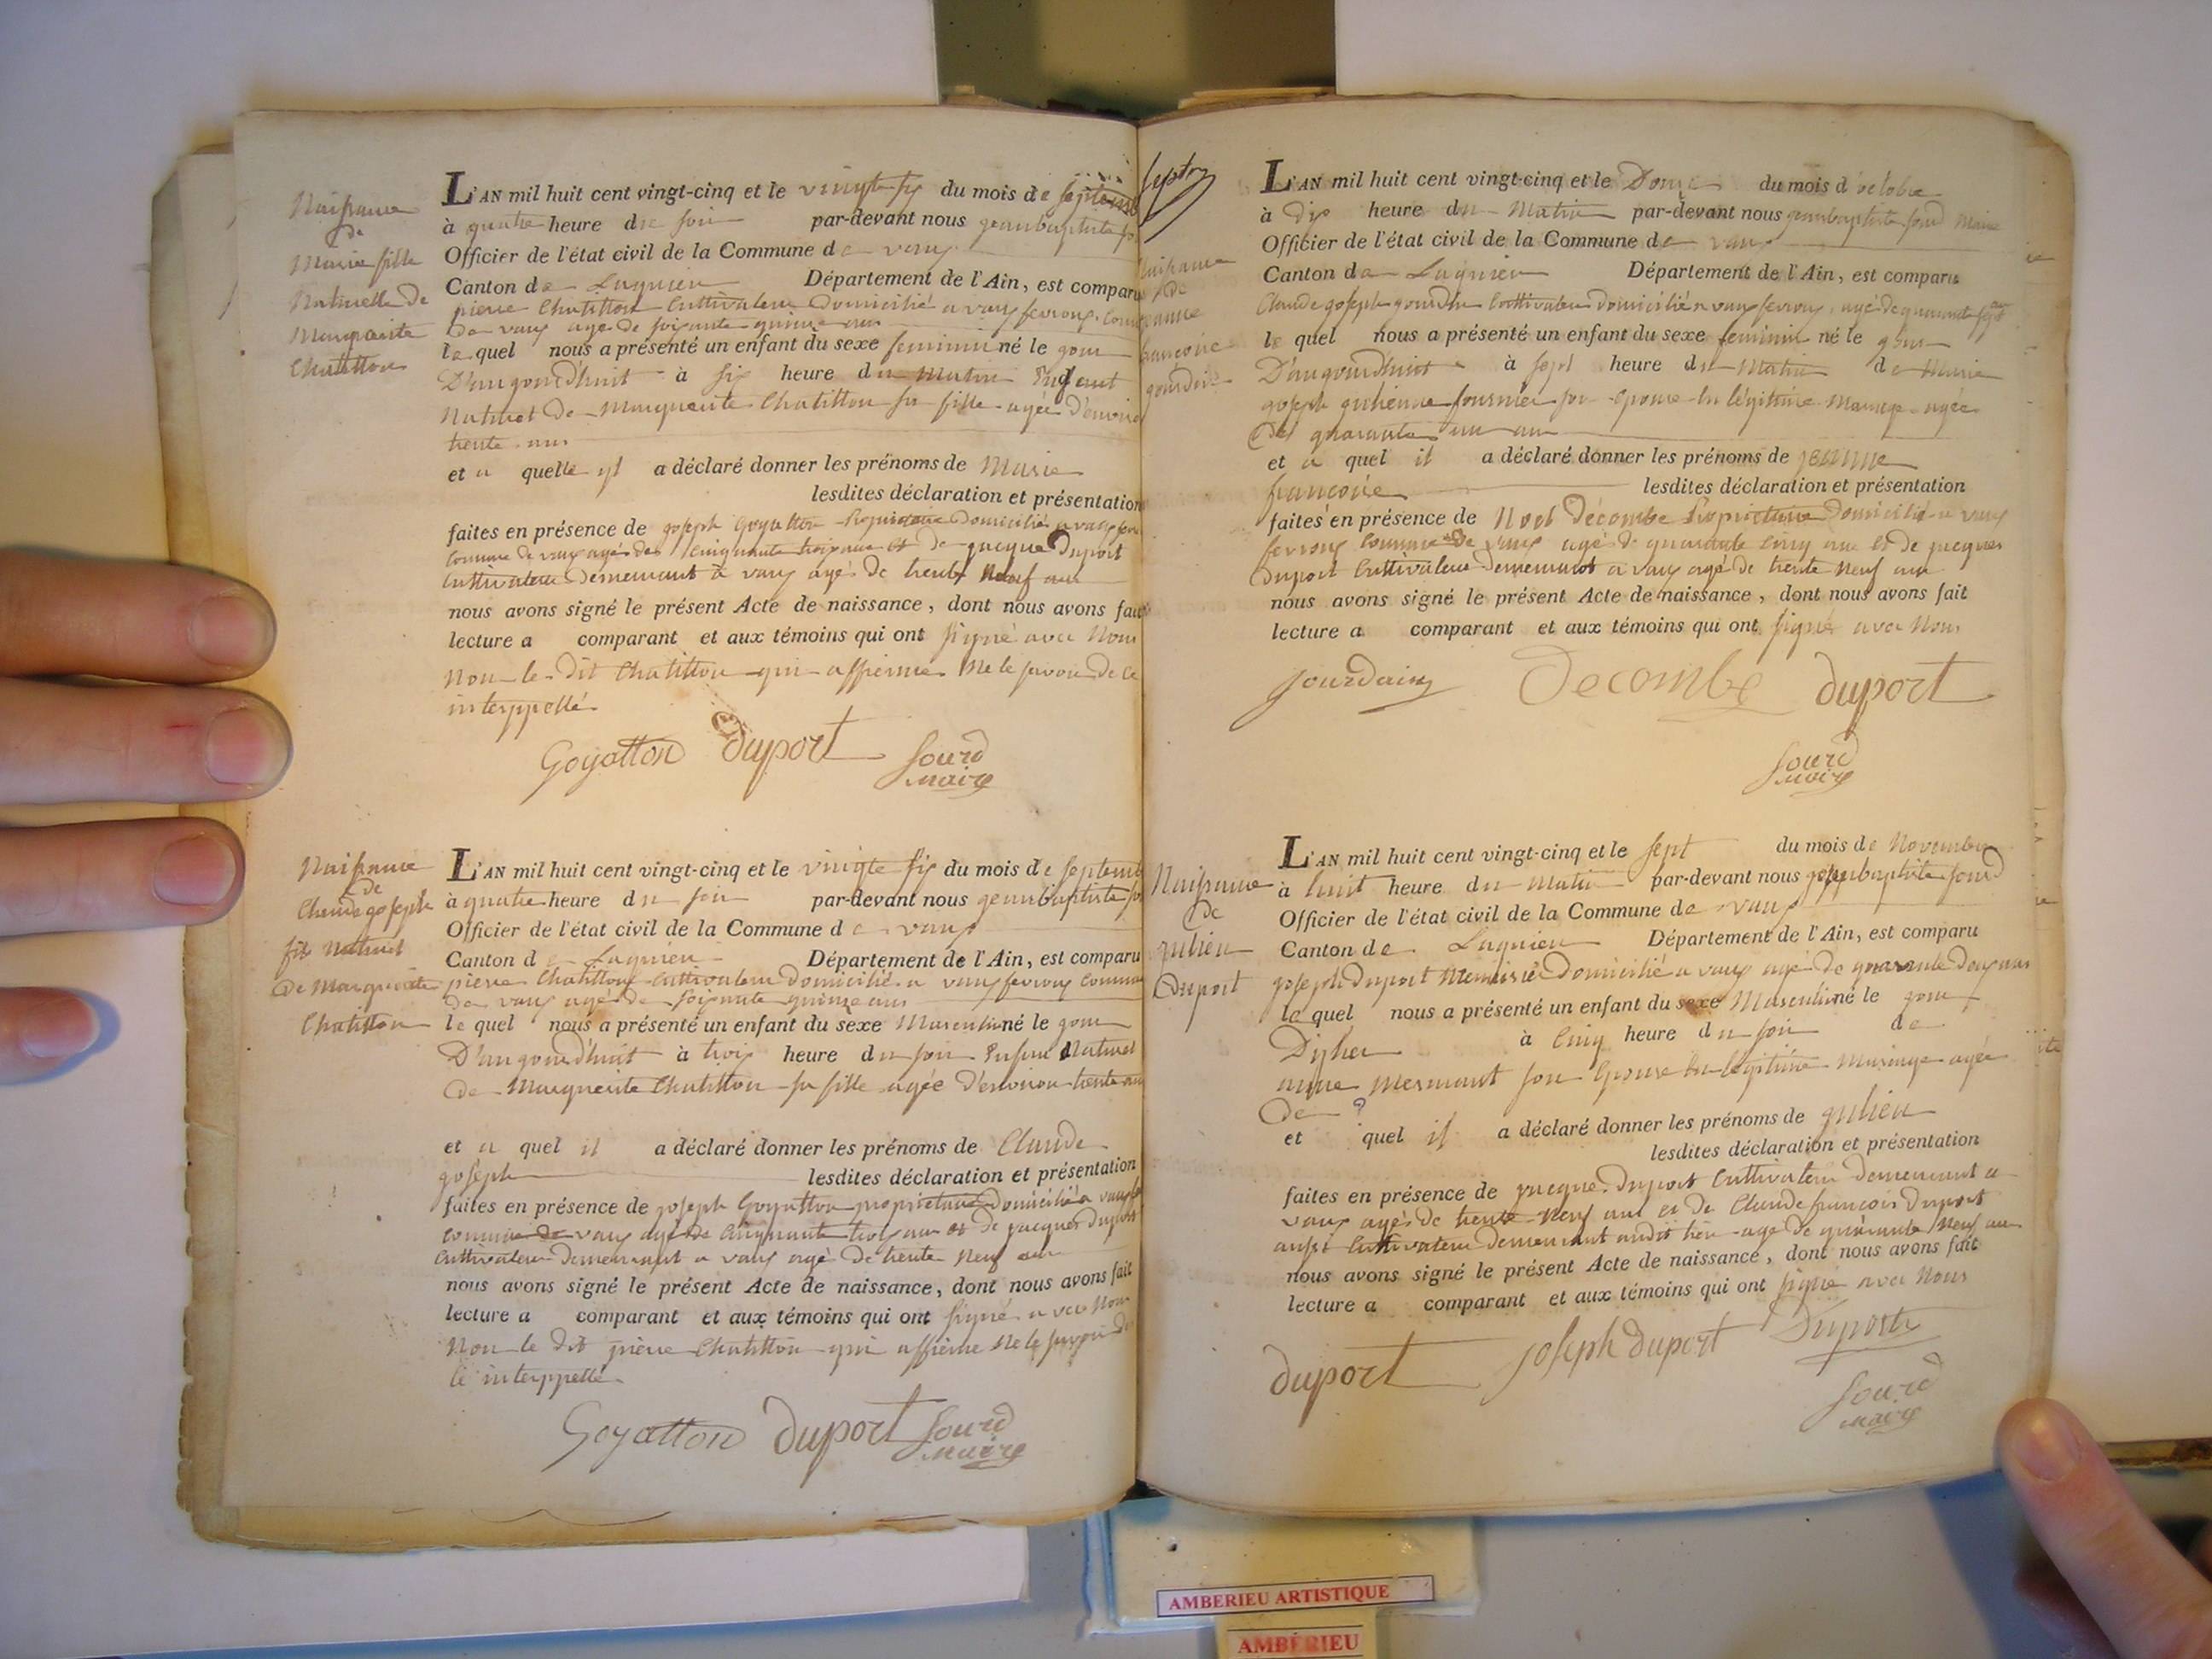 Naissance
de
Marie fille
Naturelle de
Marguerite
Chatitton
L'AN mil huit cent vingt-cinq et le vingte six du mois de septembre
à quatre heure du soir par-devant nous geanbaptiste
Officier de l'état civil de la Commune de vaux
Canton de Lagnieu Département de l'Ain, est comparu
pierre Chatitton Cultivateur Domicilié a vaux fevroux
de vaux agé de soixante quinze ans
le quel nous a présenté un enfant du sexe feminin né le jour
D'aujourd'huit à six heure du matin Enfant
Naturel de Marguerite Chatitton sa fille agée d'environ
trente ans
et a quelle yl a déclaré donner les prénoms de Marie
lesdites déclaration et présentation
faites en présence de joseph Goyatton Proprietaire Domicilié a vaux
Commune de vaux agé de Cinquante trois ans et de jacque Duport
Cultivateur Demeurant à vaux agé de trente Neuf ans
nous avons signé le présent Acte de naissance, dont nous avons fait
lecture a comparant et aux témoins qui ont signé avec Nous
Non le dit Chatitton qui affirme Ne le savoir de ce
interppellé
Goyatton duport Sourd
maire
Naissance
de
Claude joseph
fils Naturel
de Marguerite
Chatitton
L'AN mil huit cent vingt-cinq et le vingte six du mois de septemb
à quatre heure du soir par-devant nous geanbaptiste
Officier de l'état civil de la Commune de vaux
Canton de Lagnieu Département de l'Ain, est comparu
pierre Chatitton Cultivateur Domicilié a vaux fevroux Commune
de vaux agé de soixante quinze ans
le quel nous a présenté un enfant du sexe Masculin né le jour
D'aujourd'huit à trois heure du soir Enfant Naturel
de Marguerite Chatitton sa fille agée d'environ trente ans
et a quel il a déclaré donner les prénoms de Claude
joseph lesdites déclaration et présentation
faites en présence de joseph Goyatton proprietaire Domicilié a vaux
Commune de vaux agé de Cinquante trois ans et de jacques Duport
Cultivateur Demeurant a vaux agé de trente Neuf ans
nous avons signé le présent Acte de naissance, dont nous avons fait
lecture a comparant et aux témoins qui ont signé avec Nous
Non le dit pierre Chatitton qui affirme Ne le savoir de
ce interppellé
Goyatton duport Sourd
maire
septbre
Naissance
de
jeanne
francoise
gourdin
L'AN mil huit cent vingt-cinq et le Douze du mois d'octobre
à Dix heure du Matin par-devant nous geanbaptiste sourd Maire
Officier de l'état civil de la Commune de vaux
Canton de Lagnieu Département de l'Ain, est comparu
Claude joseph gourdin Cultivateur domicilié a vaux fevroux agé de quarante sept ans
le quel nous a présenté un enfant du sexe feminin né le jour
D'aujourd'huit à sept heure du Matin de Marie
joseph fournier son epouse en légitime Mariage agée
de quarante un an
et a quel il a déclaré donner les prénoms de jeanne
francoise lesdites déclaration et présentation
faites en présence de Noel Décombe Proprietaire Domicilié a vaux
fevroux Commune de vaux agé de quarante cinq ans et de jacques
Duport Cultivateur Demeurant a vaux agé de trente Neuf ans
nous avons signé le présent Acte de naissance, dont nous avons fait
lecture a comparant et aux témoins qui ont signé avec Nous
Jourdain Decombe duport
Sourd
maire
Naissance
de
julien
Duport
L'AN mil huit cent vingt-cinq et le sept du mois de Novembre
à huit heure du matin par-devant nous jeanbaptiste sourd
Officier de l'état civil de la Commune de vaux
Canton de Lagnieu Département de l'Ain, est comparu
joseph Duport Menuisié Domicilié a vaux agé de quarante Deux ans
le quel nous a présenté un enfant du sexe Masculin né le jour
D'yher à Cinq heure du soir de
anne Mermant son Epouse en légitime Mariage agée
De ?
et quel il a déclaré donner les prénoms de julien
lesdites déclaration et présentation
faites en présence de jacque Duport Cultivateur Demeurant a
vaux agé de trente Neuf ans et de Claude francois Duport
aussi Cultivateur demeurant audit lieu agé de quarante Neuf ans
nous avons signé le présent Acte de naissance, dont nous avons fait
lecture a comparant et aux témoins qui ont signé avec Nous
duport joseph duport Duport
Sourd
maire
AMBERIEU ARTISTIQUE
AMBÉRIEU